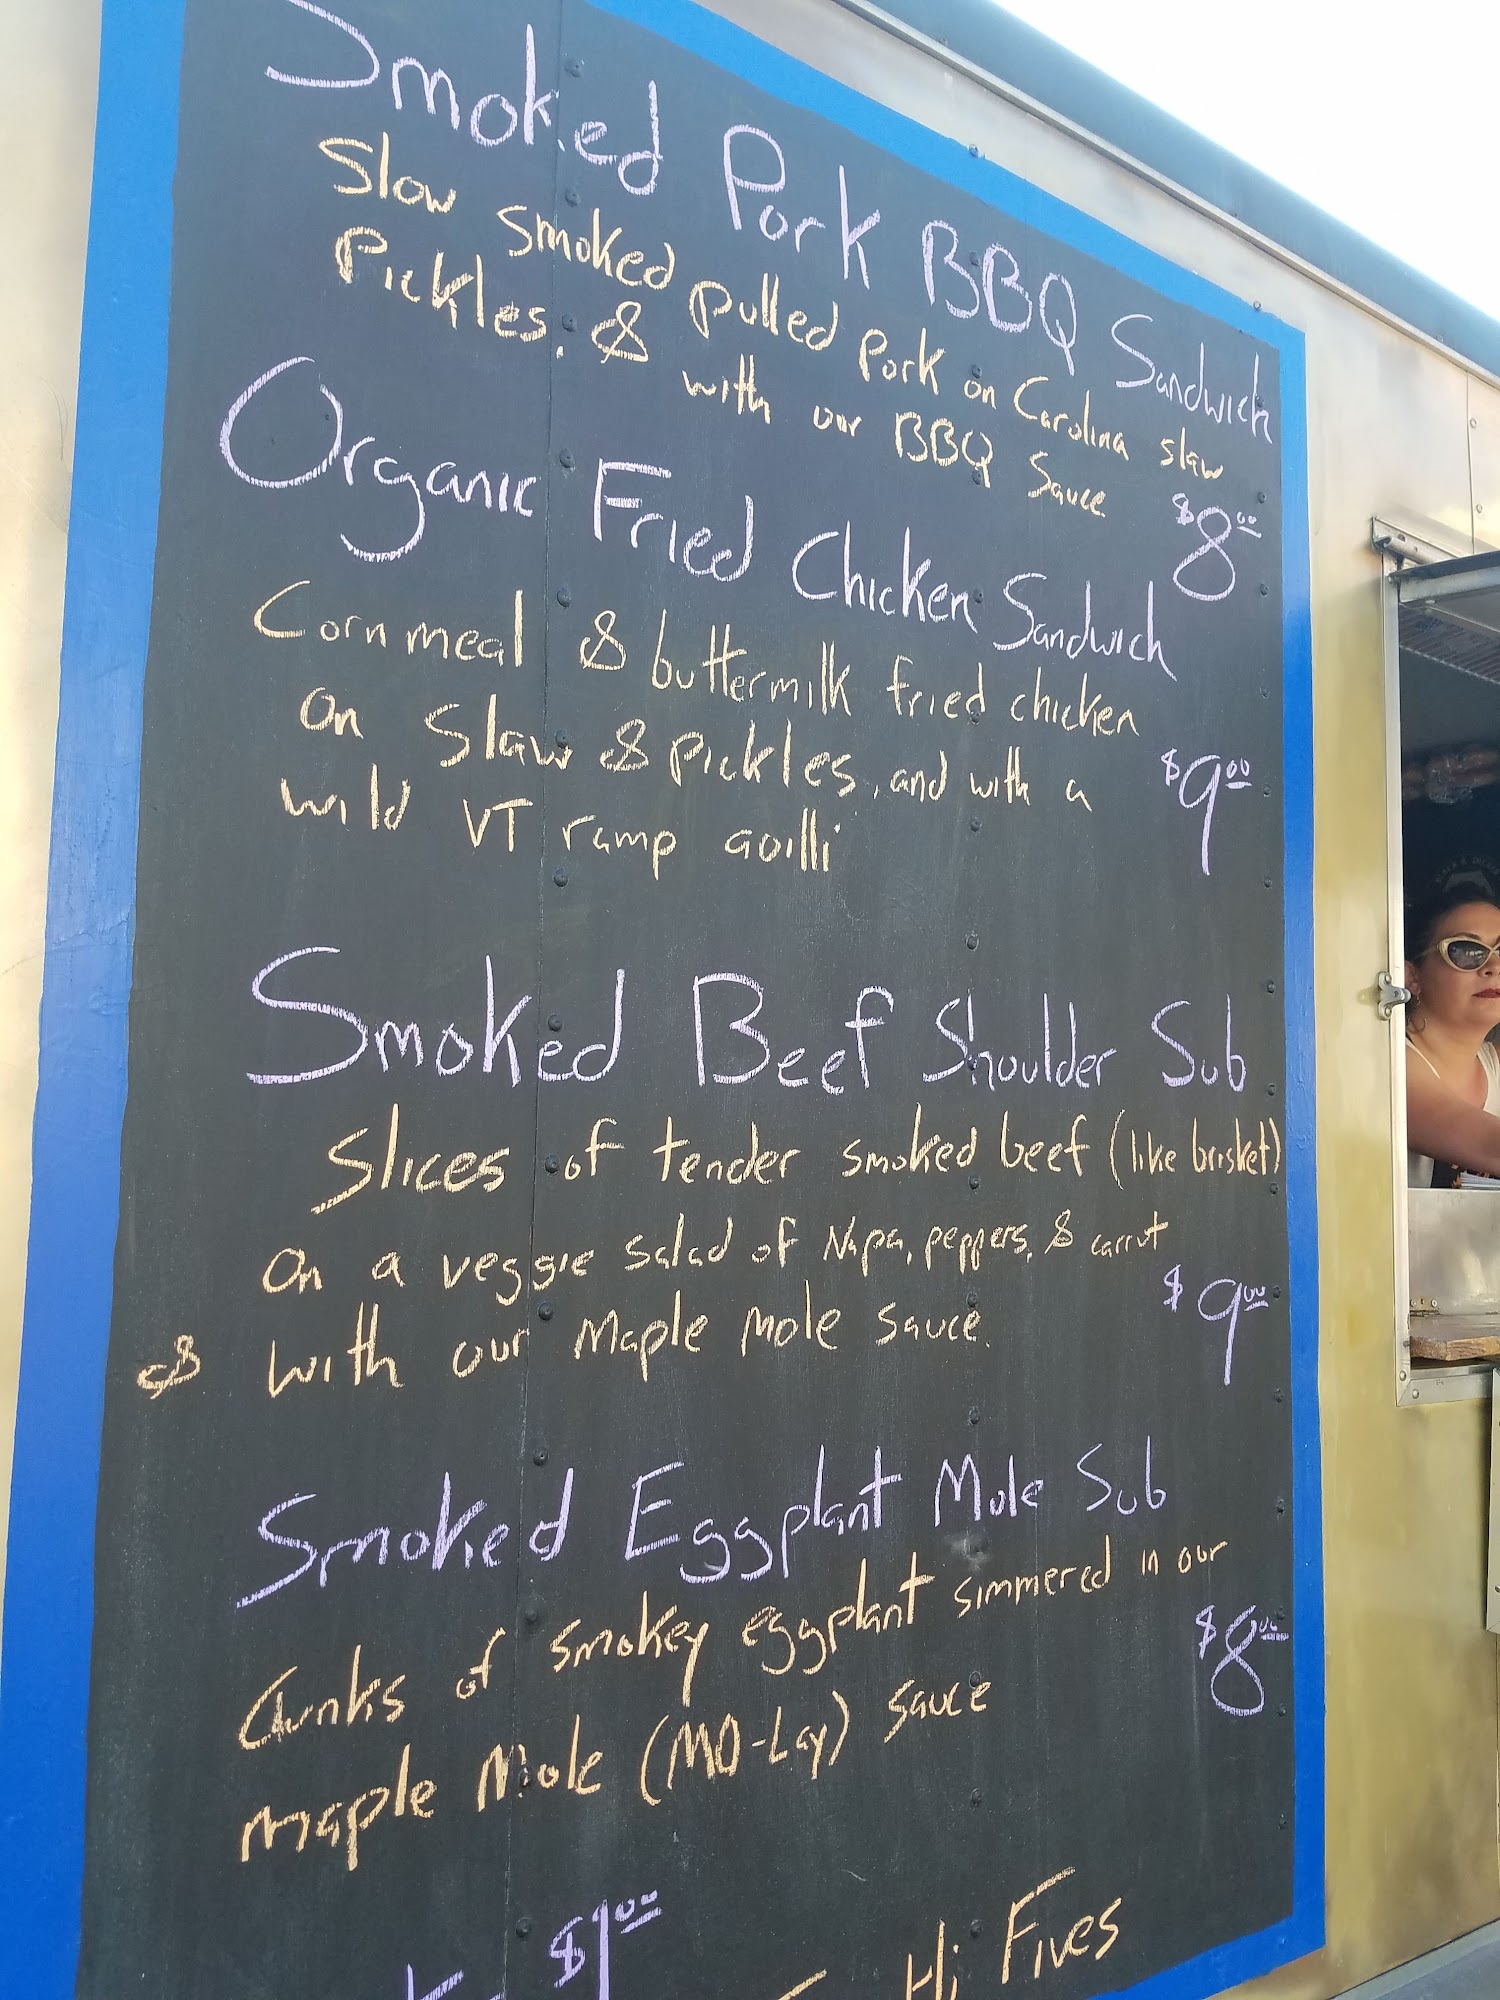 Smoked Pork BBQ Sandwich
Slow smoked pulled Pork on Carolina slaw
Pickles, & with our BBQ Sauce
$8.00
Organic Fried Chicken Sandwich
Cornmeal & buttermilk fried chicken
on slaw & pickles, and with a
wild VT ramp aoilli
$9.00
Smoked Beef Shoulder Sub
Slices of tender smoked beef (like brisket)
On a veggie salad of Napa, peppers, & carrot
& with our Maple Mole sauce.
$9.00
Smoked Eggplant Mole Sub
Chunks of smokey eggplant simmered in our
Maple Mole (MO-Lay) sauce
$8.00
$1.00
Hi Fives